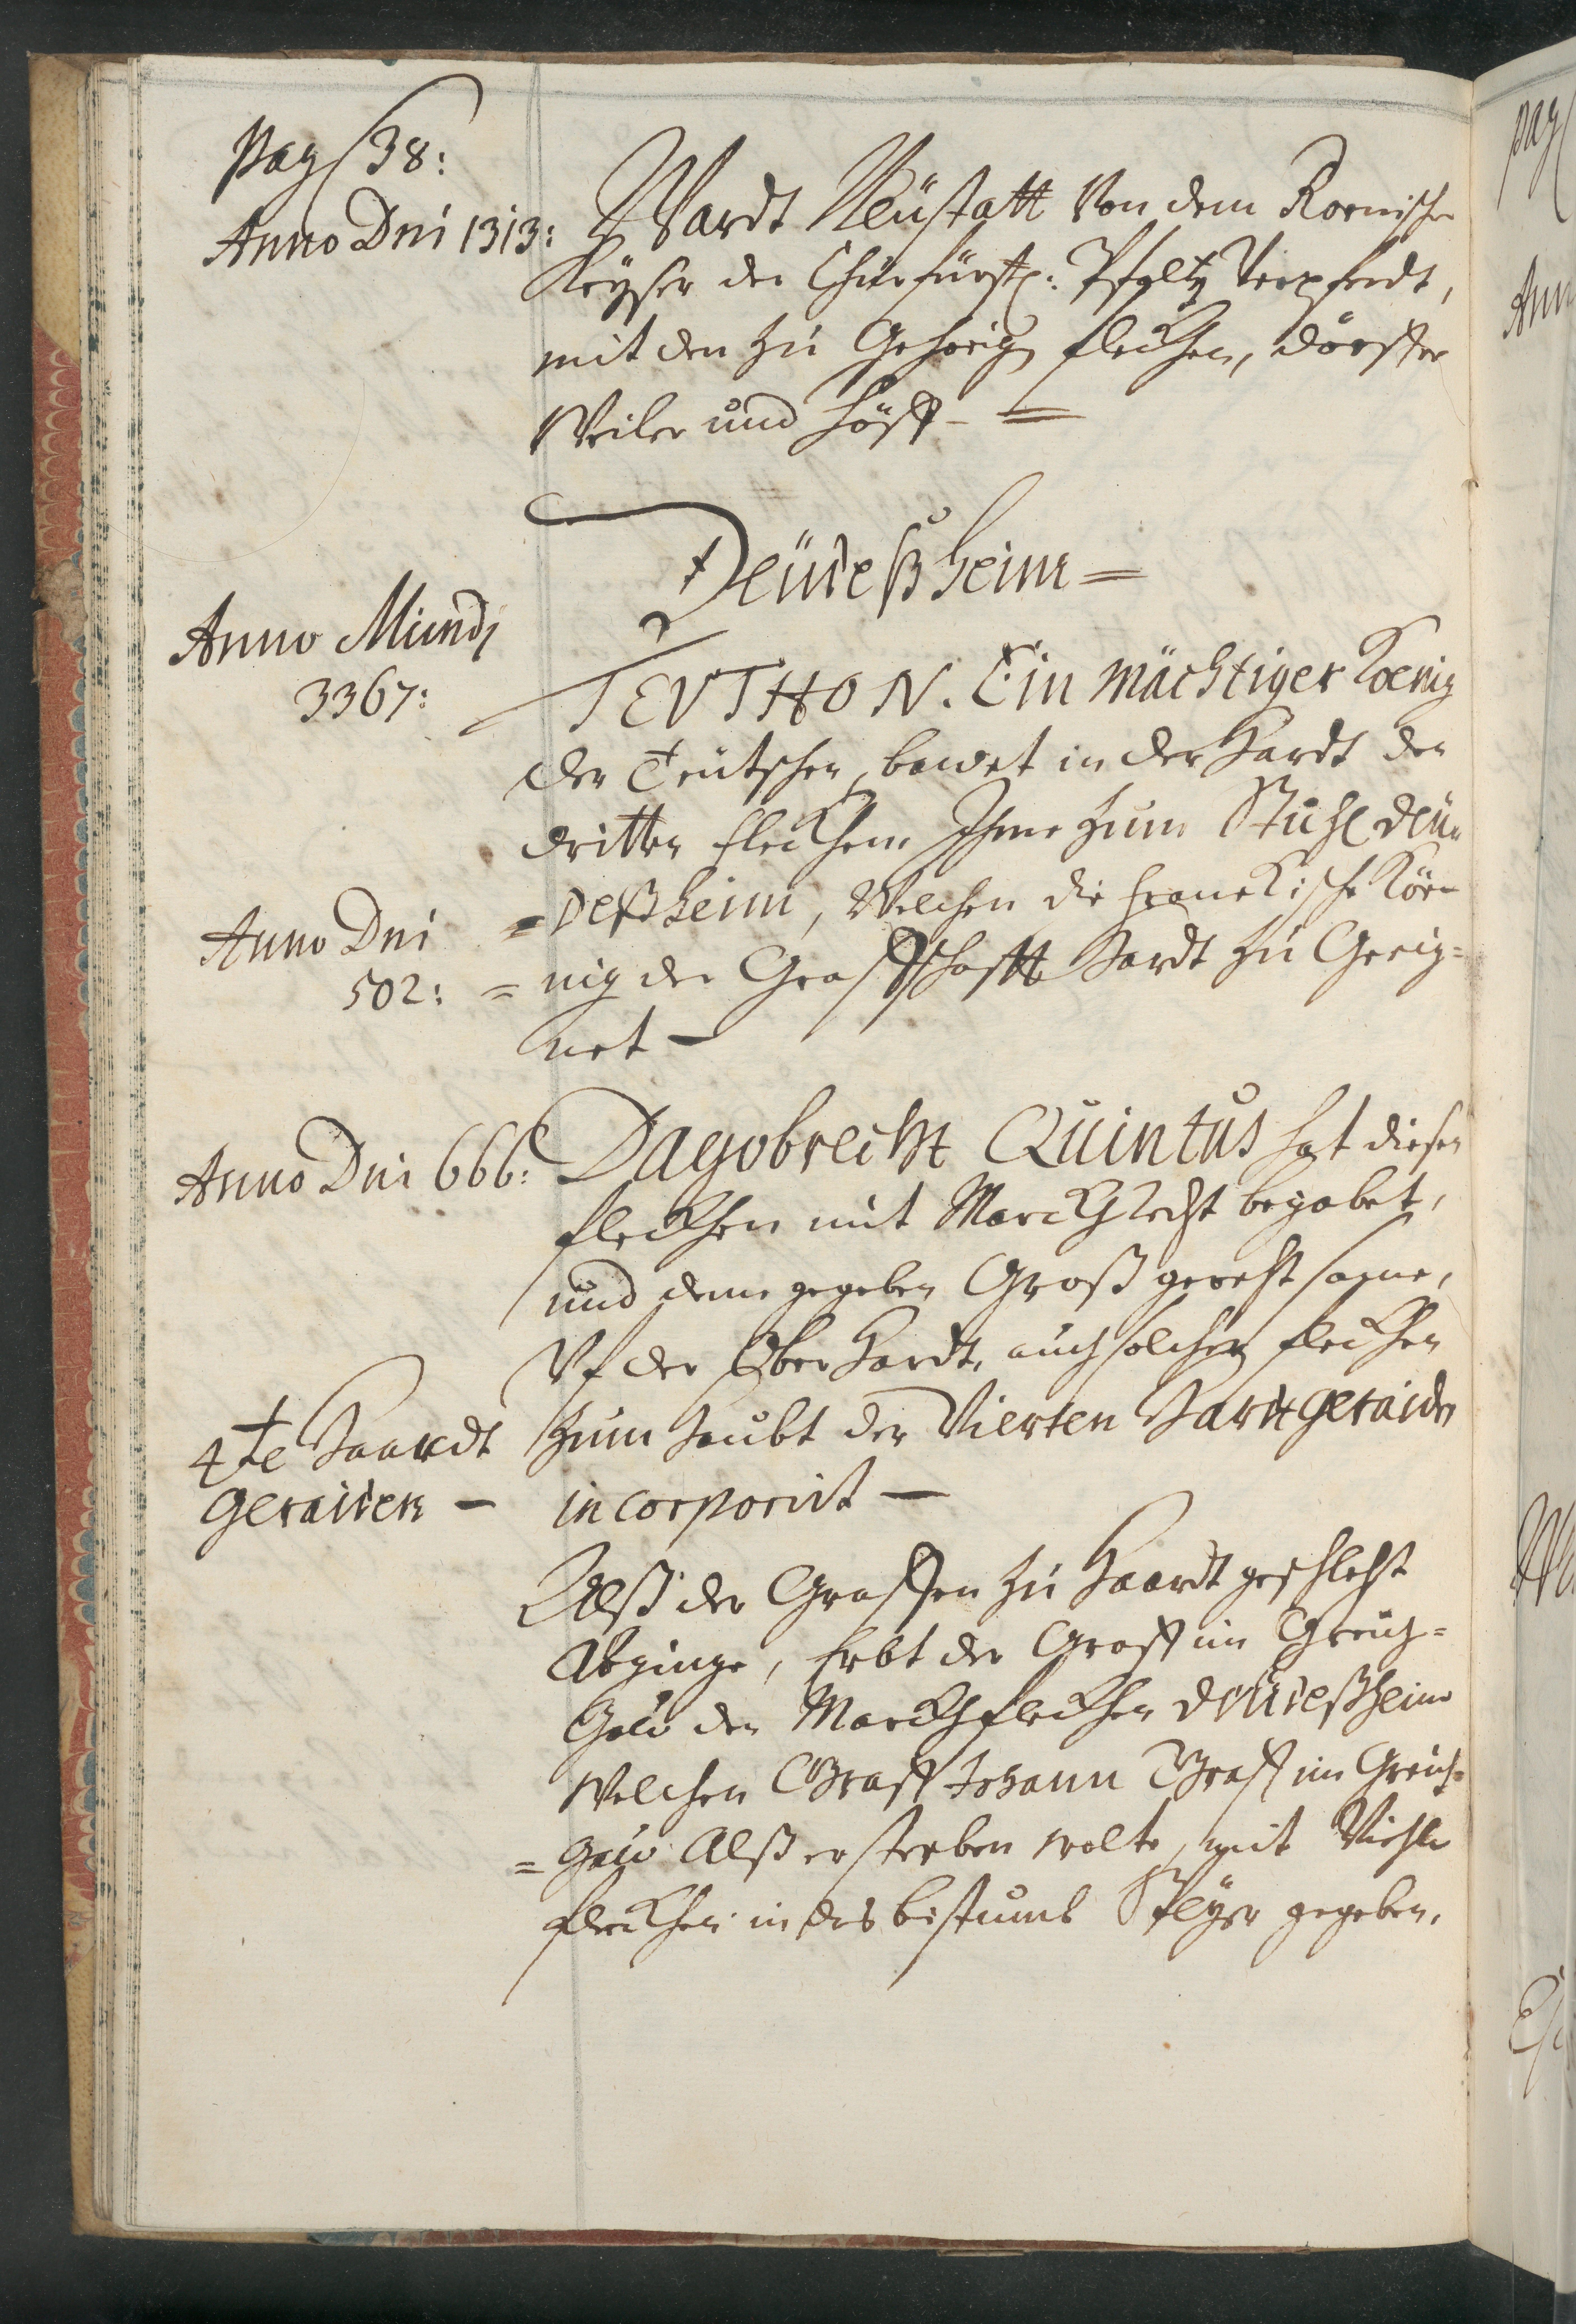 Pag 38:
Anno Dni 1313: Wardt Neüstatt Von dem Roemischen
Keÿser der Chürfürstl: Pfaltz Verpfendt,
mit den zu Gehörigen fleckhen, dörffer
Weiler und höff - =
Deüdeßheim =
Anno Mundi
3367:
TEVTHON. Ein mächtiger Koenig
der Teütschen, bawet in der Hardt den
dritten fleckhen Ihme zum Stuhl deü=
=deßheim, Welchen die franckische Kön=
Anno Dni
502:
=nig der Graffschafft Hardt zu Geeig=
net -
Anno Dni 666: Dagobrecht Quintus hat diesen
fleckhen mit Marckhrecht begabet,
und deme gegeben Groß gerechtsame,
Vf der Ober Hardt, auch solchen fleckhen
4te Haardt
Geraiden -
zum haubt der Vierten Hardtgeraiden
incorporirt -
Alß der Graffen zu Haardt geschlecht
Abginge, Erbt der Graff im Greich=
Gau den Marckhfleckhen Deüdeßheim
Welchen Graff Johann Graff im Greich=
=gau Alß er sterben wolte, mit Viehlen
fleckhen in das bistumb Speÿer gegeben.